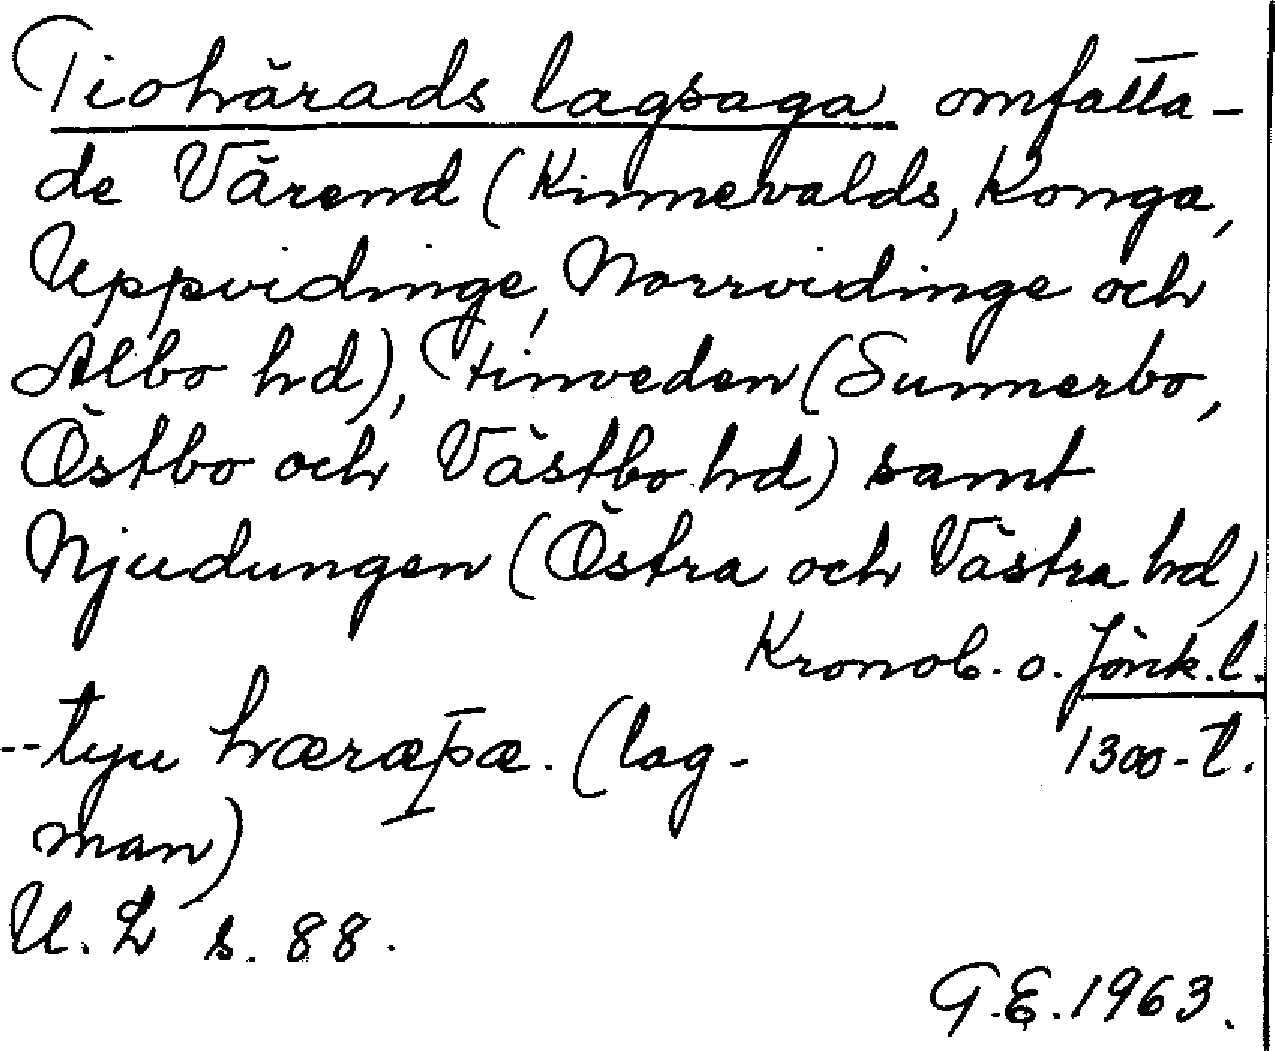 Tiohärads lagsaga omfatta-
de Värend (Kinnevalds, Konga,
Uppvidinge, Norrvidinge och
Albo hd), Finveden (Sunnerbo,
Östbo och Västbo hd) samt
Njudungen (Östra och Västra hd)
Kronob. o. Jönk. l.
--tyu hæraþæ. (lag-
1300-t.
man)
U. L s. 88.
G.E. 1963.